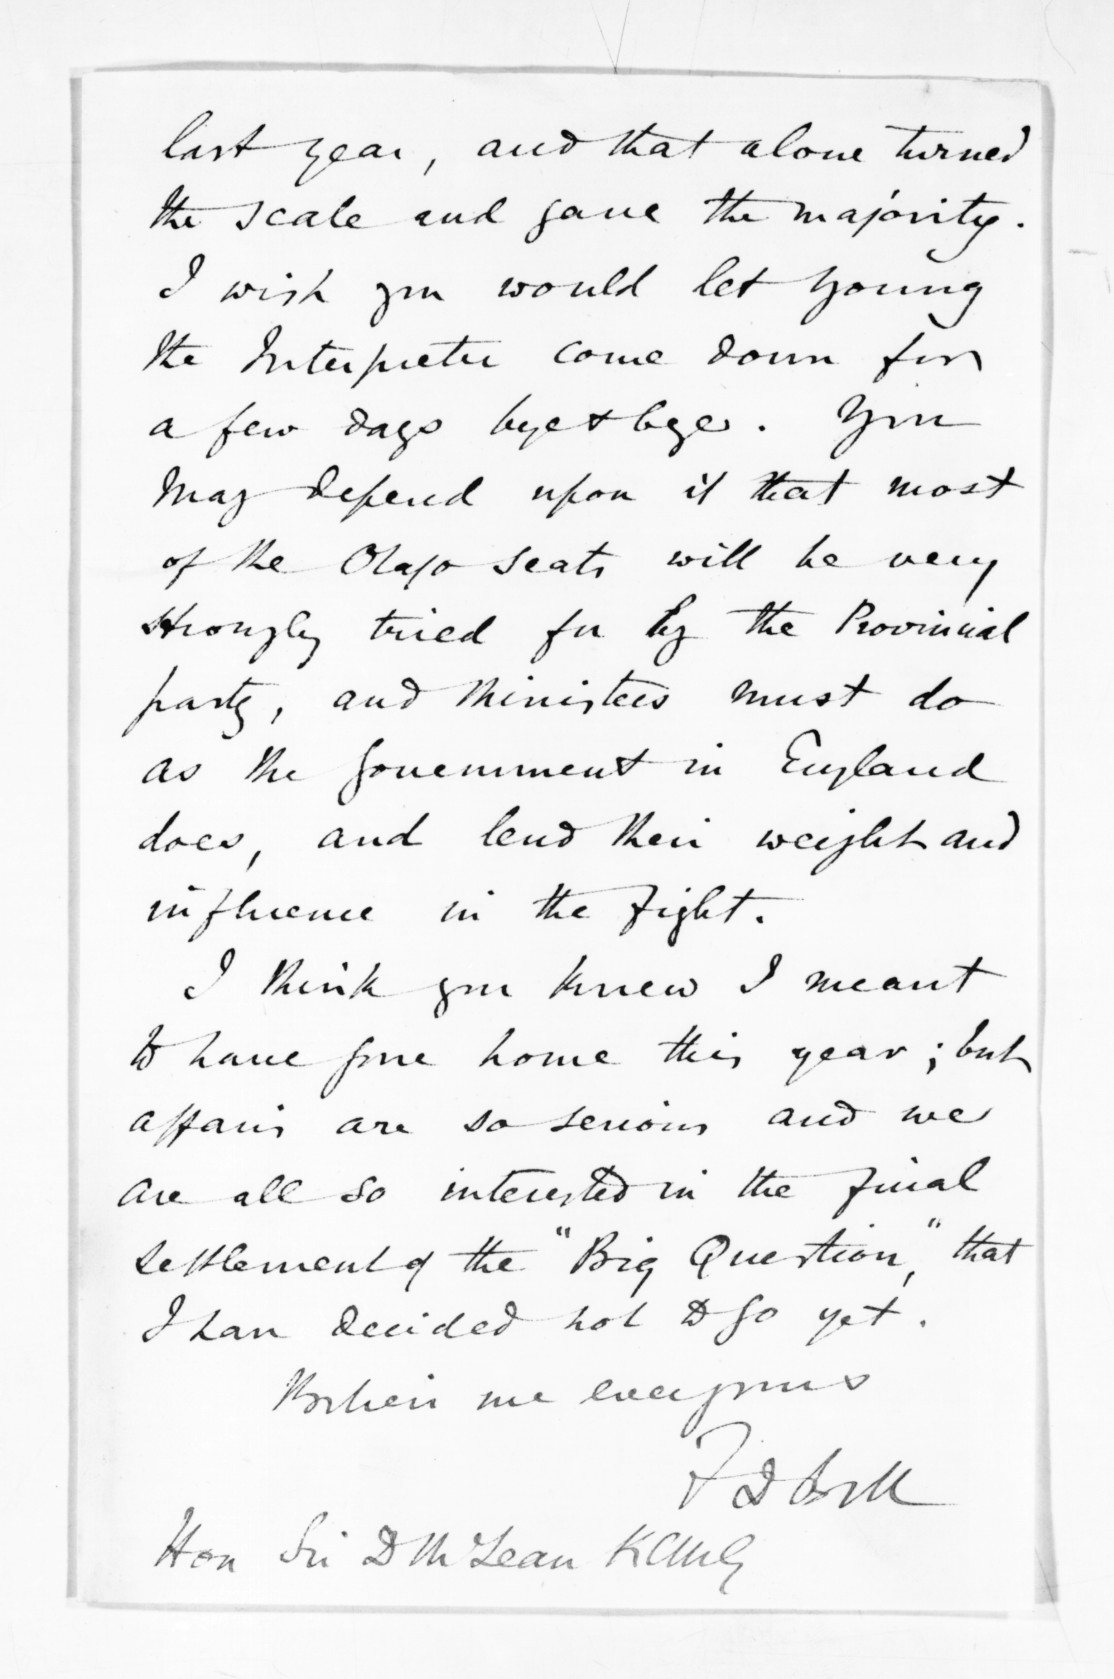 last year, and that alone turned
the scale and gave the majority.
I wish you would let Young
the Interpreter come down for
a few days bye & bye. You
may depend upon it that most
of the Otago seats will be very
strongly tried for by the Provincial
party, and Ministers must do
as the Government in England
does, and lend their weight and
influence in the fight.
I think you knew I meant
to have gone home this year; but
affairs are so serious and we
are all so interested in the final
settlement of the "Big Question," that
I have decided not to go yet.
Believe me ever yours
F D Bell
Hon Sir D McLean KCMG